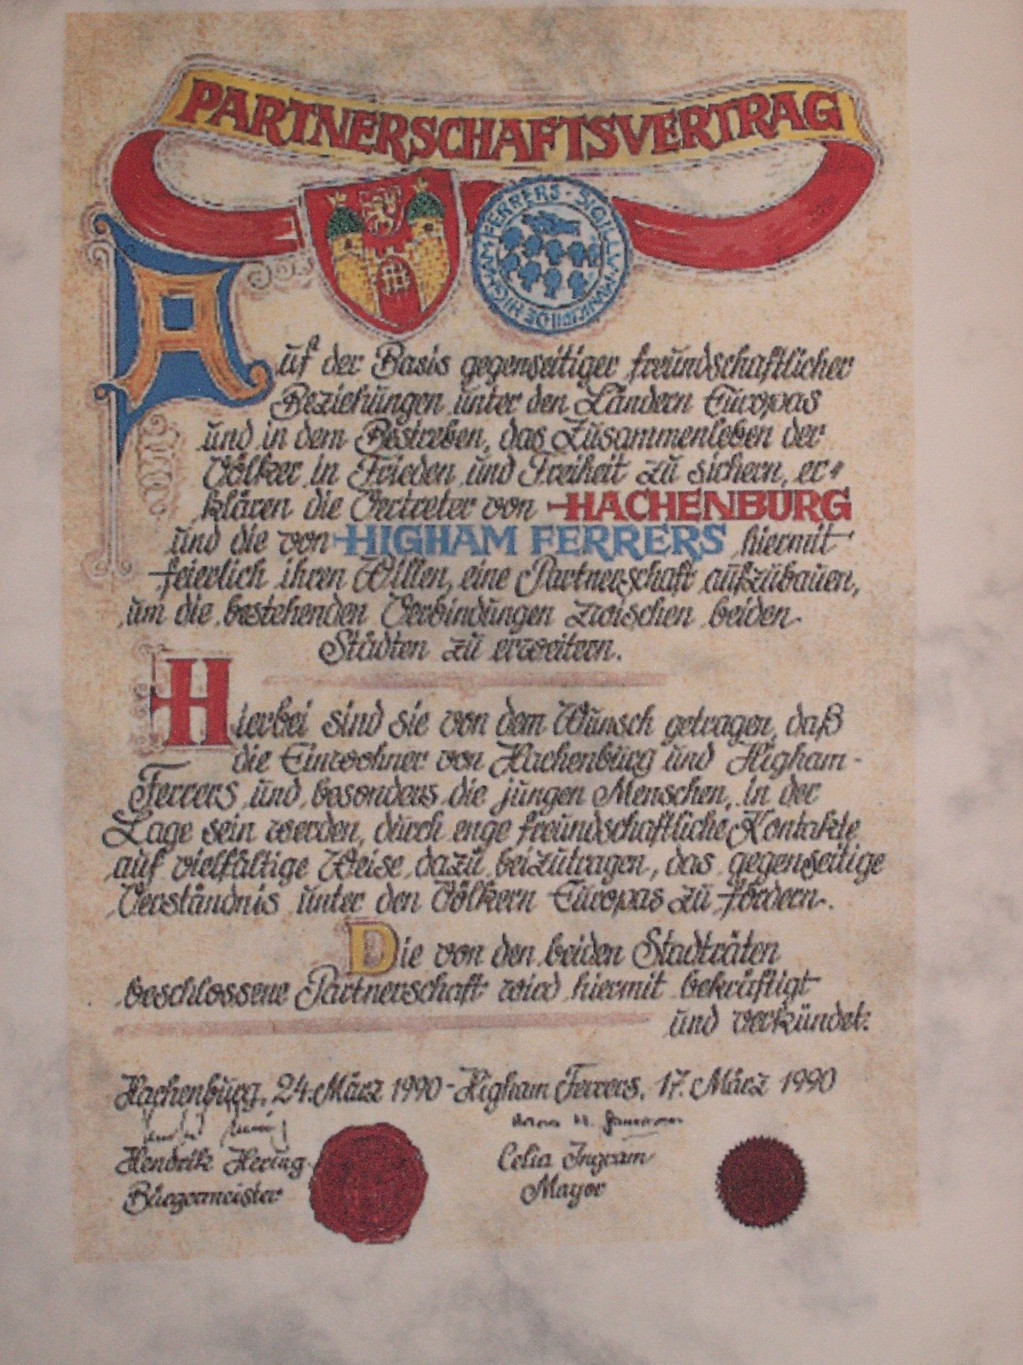 PARTNERSCHAFTSVERTRAG
HIGHAM FERRERS · SIGILLV
Auf der Basis gegenseitiger freundschaftlicher
Beziehungen unter den Ländern Europas
und in dem Bestreben, das Zusammenleben der
Völker in Frieden und Freiheit zu sichern, er-
klären die Vertreter von HACHENBURG
und die von HIGHAM FERRERS hiermit
feierlich ihren Willen, eine Partnerschaft aufzubauen,
um die bestehenden Verbindungen zwischen beiden
Städten zu erweitern.
Hierbei sind sie von dem Wunsch getragen, daß
die Einwohner von Hachenburg und Higham-
Ferrers, und besonders die jungen Menschen, in der
Lage sein werden, durch enge freundschaftliche Kontakte
auf vielfältige Weise dazu beizutragen, das gegenseitige
Verständnis unter den Völkern Europas zu fördern.
Die von den beiden Stadträten
beschlossene Partnerschaft wird hiermit bekräftigt
und verkündet:
Hachenburg, 24. März 1990 - Higham Ferrers, 17. März 1990
Hendrik Hering
Bürgermeister
Celia Ingram
Mayor